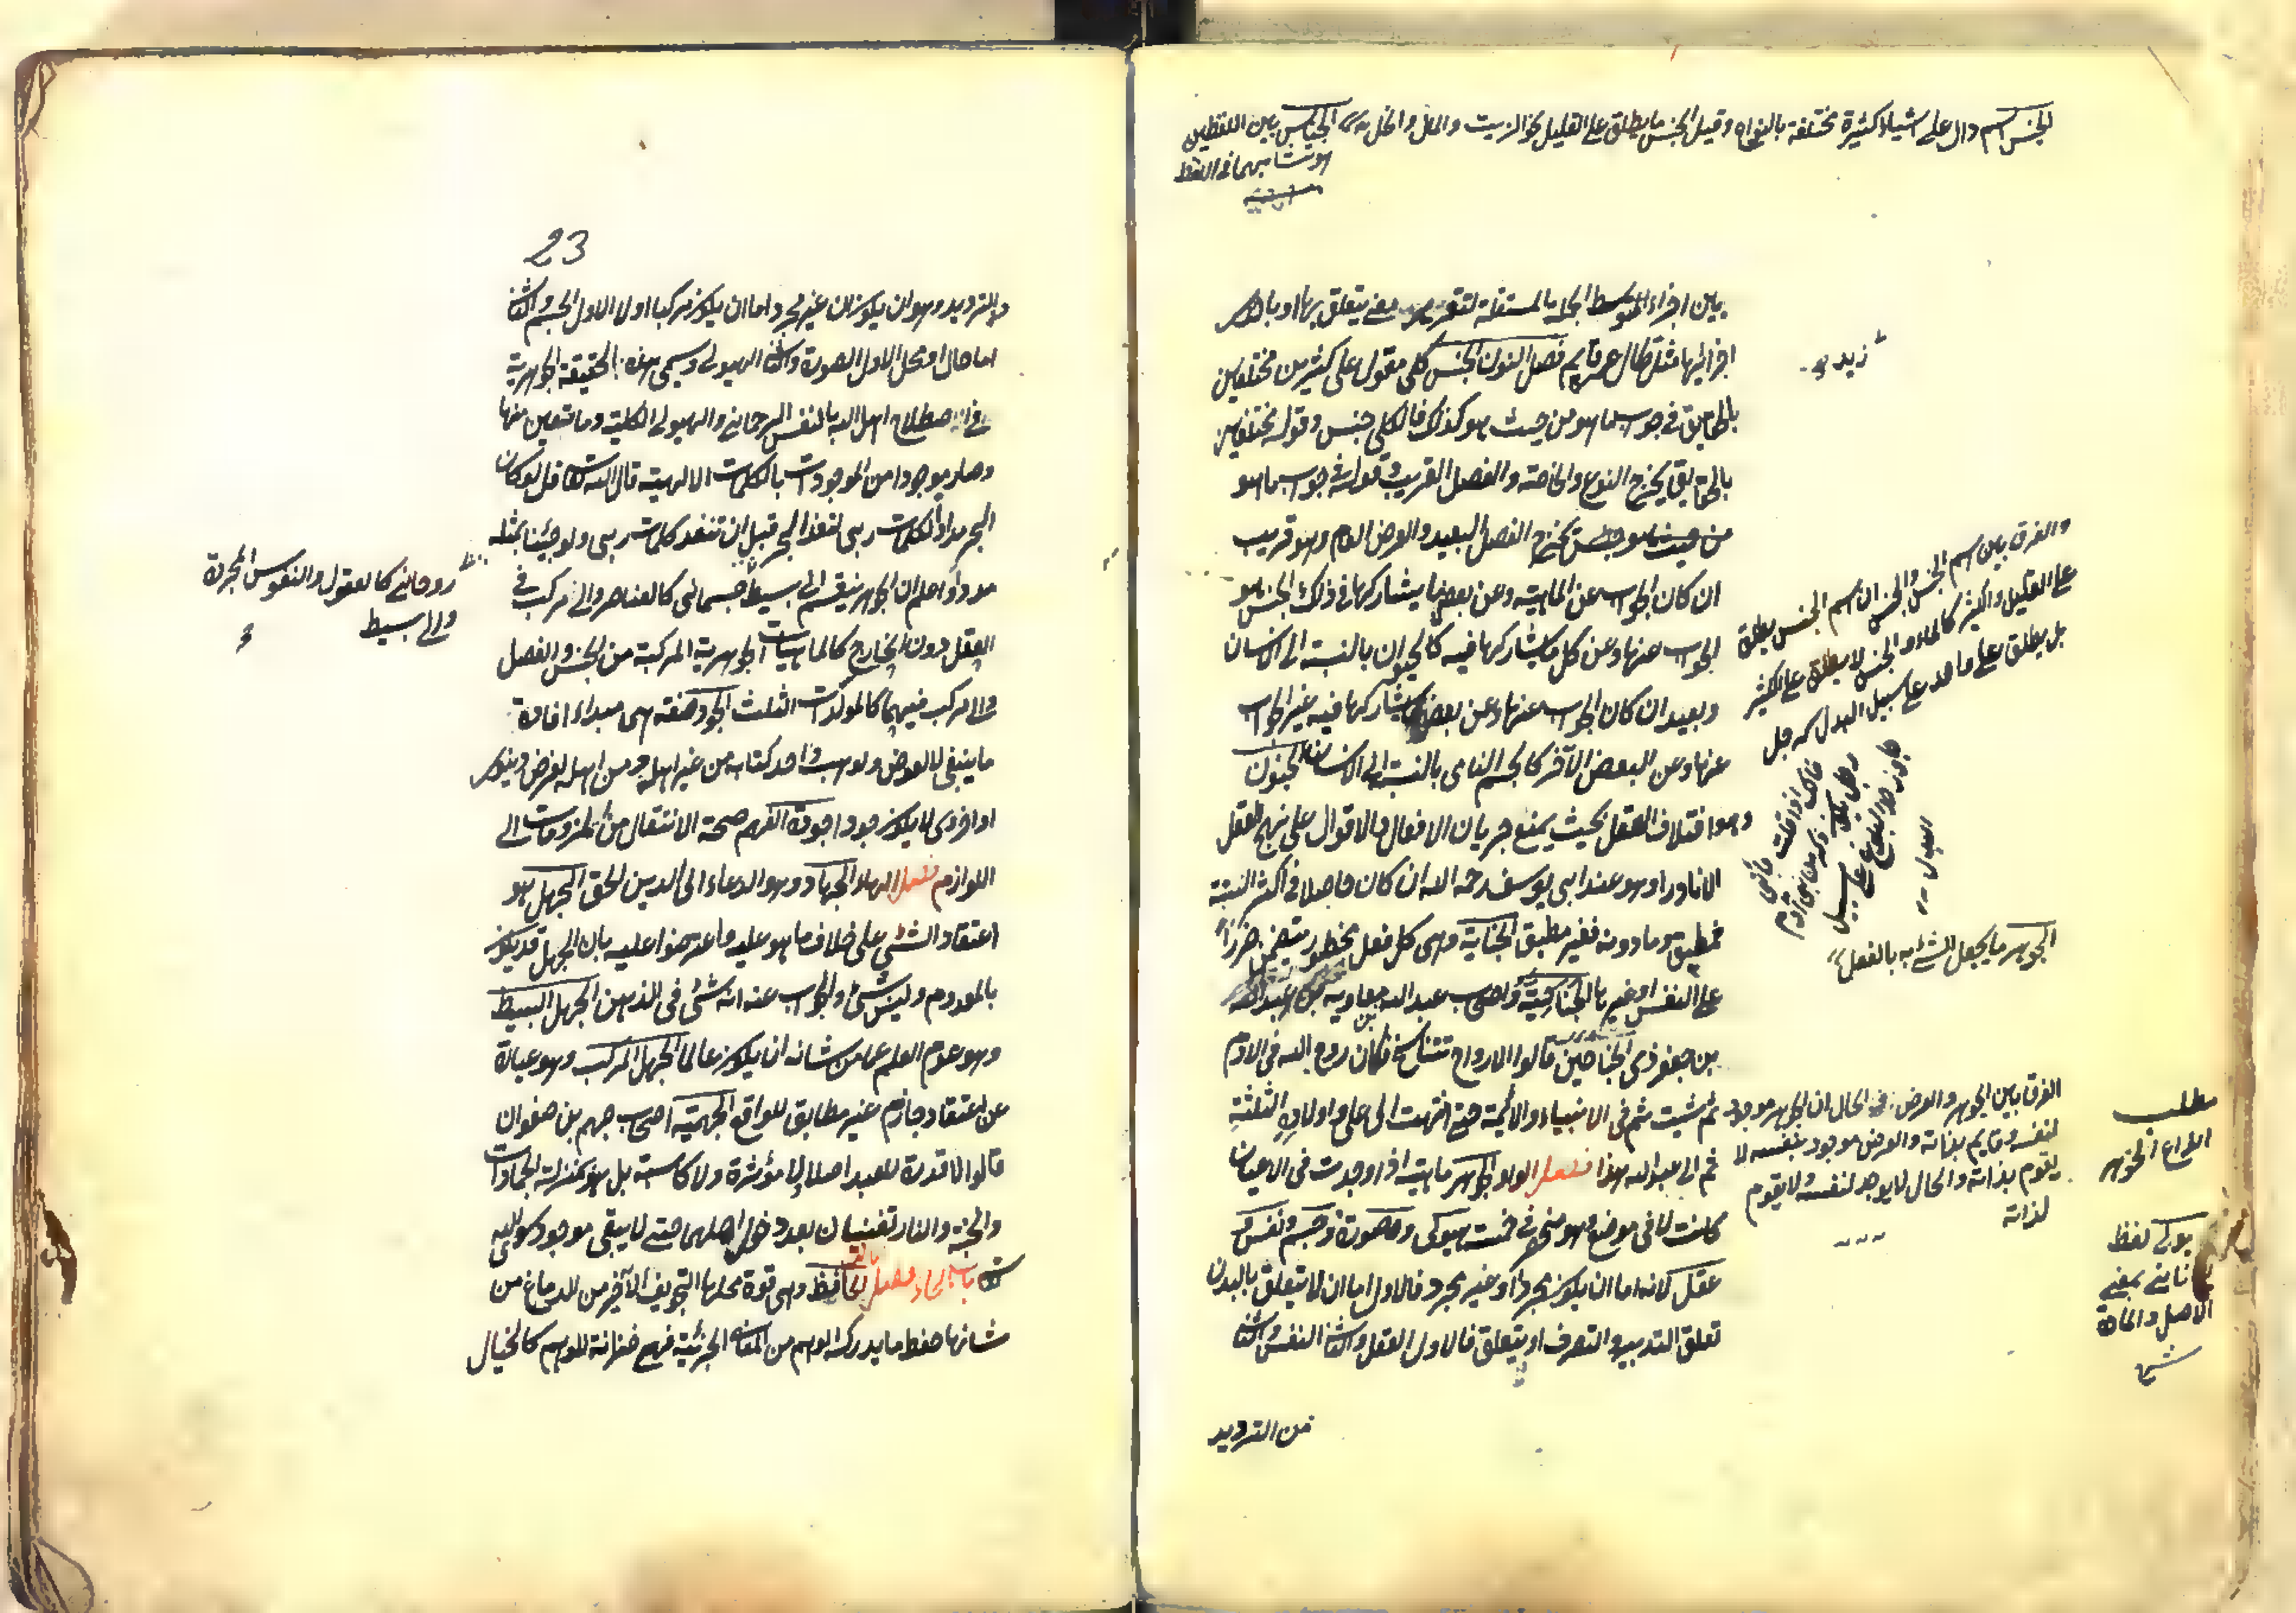 الجنس اسم دال على اشياء كثيرة مختلفة بالانواع وقيل الجنس ما يطلق على القليل نحو الزيت والماء والخل الجناس بين اللفظين
هو تشابههما في اللفظ
بين اجزاء المتوسط الجملة المستقلة لتقرير معنى يتعلق بها او باحد
اجزائها مثل قال عمر قايم فصل النون الجنس كلي مقول على كثيرين مختلفين
زيد
بالحقايق في جواب ما هو من حيث هو كذلك فالكلي جنس وقوله مختلفين
بالحقايق يخرج النوع والخاصة والفصل القريب وقوله في جواب ما هو
من حيث هو جنس يخرج الفصل البعيد والعرض العام وهو قريب
ان كان الجواب عن الماهية وعن بعض ما يشاركها في ذلك الجنس هو
الجواب عنها وعن كل ما يشاركها فيه كالحيوان بالنسبة الى الانسان
وبعيد ان كان الجواب عنها وعن بعض ما يشاركها فيه غير الجواب
عنها وعن البعض الآخر كالجسم النامي بالنسبة الى الانسان الجنون
وهو اختلاف العقل بحيث يمنع جريان الافعال والاقوال على نهج العقل
الا نادرا وهو عند ابي يوسف رحمه الله ان كان حاصلا في اكثر السنة
فمطبق وما دونه فغير مطبق الجناية وهي كل فعل محظور يتضمن ضررا
على النفس او غيرها الجناحية واصحاب عبد الله بن معاوية بن عبد الله
بن جعفر ذي الجناحين قالوا الارواح تتناسخ فكان روح الله في الادم
ثم شيث ثم في الانبياء والائمة حتى انتهت الى علي واولاده الثلثة
ثم الى عبد الله هذا فصل الواو الجوهر ماهية اذا وجدت في الاعيان
كانت لا في موضع وهو منحصر في خمسة هيولى وصورة وجسم ونفس و
عقل لانه اما ان يكون مجردا او غير مجرد فالاول اما ان لا يتعلق بالبدن
تعلق التدبير والتصرف او يتعلق فالاول العقل والثاني النفس والثاني
من الترديد
والفرق بين اسم الجنس والجنس ان اسم الجنس يطلق
على القليل والكثير كالماء والجنس لا يطلق على الكثير
بل يطلق على واحد على سبيل البدل كرجل
الجوهر ما يجعل الشيء به بالفعل
الفرق بين الجوهر والعرض في الحال ان الجوهر موجود
لنفسه وقايم بذاته والعرض موجود بنفسه لا
يقوم بذاته والحال لا يوجد لنفسه ولا يقوم
لذاته
مطلب
انواع الجوهر
هيولى لفظ
يوناني بمعنى
الاصل والمادة
23
والترديد وهو ان يكون ان غير مجرد اما ان يكون مركبا او لا الاول الجسم والثاني
اما حال او محل الاول الصورة والثاني الهيولى ويسمى هذه الحقيقة الجوهرية
في اصطلاح اهل الله بالنفس الرحماني والهيولى الكلية وما تتعين منها
وصار موجودا من الموجودات بالكلمات الالهية قال الله تعالى قل لو كان
البحر مدادا لكلمات ربي لنفد البحر قبل ان تنفد كلمات ربي ولو جئنا بمثله
مددا واعلم ان الجوهر ينقسم الى بسيط جسماني كالعناصر والى مركب في
روحاني كالعقول والنفوس المجردة
والى بسيط
العقل دون الخارج كالماهيات الجوهرية المركبة من الجنس والفصل
والى مركب فيهما كالمولدات الثلث الجود صفة هي مبداء افادة
ما ينبغي لا لعوض ولو وهب واحد كتابه من غير اهله ومن اهله لغرض دنيوي
او اخروي لا يكون جودا جودة الفهم صحة الانتقال من الملزومات الى
اللوازم فصل الهاء الجهاد وهو الدعاء الى الدين الحق الجهل هو
اعتقاد الشيء على خلاف ما هو عليه واعترضوا عليه بان الجهل قد يكون
بالمعدوم وليس شئ والجواب عنه انه شئ في الذهن الجهل البسيط
وهو عدم العلم عما من شانه ان يكون عالما الجهل المركب وهو عبارة
عن اعتقاد جازم غير مطابق للواقع الجهمية اصحاب جهم بن صفوان
قالوا لا قدرة للعبد اصلا لا مؤثرة ولا كاسبة بل هو بمنزلة الجمادات
والجنة والنار تفنيان بعد دخول اهلهما حتى لا يبقى موجود سوى الله
تعالى باب الحاء فصل الالف الحافظة وهي قوة محلها التجويف الآخر من الدماغ من
شانها حفظ ما يدركه الوهم من المعاني الجزئية فهي خزانة للوهم كالخيال